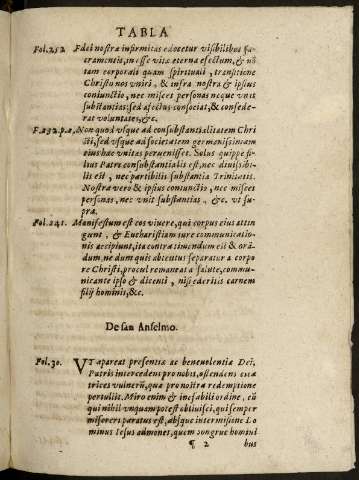 TABLA
Fol.252. Fdei nostræ infirmitas edocetur visibilibus sa-
cramentis, inesse vitæ eterna efectum, & nõ
tam corporali quam spirituali, transitione
Christo nos vniri, & infra nostra & ipsius
coniunctio, nec miscet personas neque vnit
substantias: sed afectus consociat, & confede-
rat voluntates, &c.
F.232.p.2. Non quod vsque ad consubstãtialitatem Chri
sti, sed vsque ad societatem germanissimam
eius hæc vnitas peruenisset. Solus quippe fi-
lius Patri consubstantialis est, nec diuisibi-
lis est, nec partibilis substantia Trinitatis.
Nostra vero & ipsius coniunctio, nec miscet
personas, nec vnit substantias, &c. vt su-
pra.
Fol.241. Manifestum est eos viuere, qui corpus eius attin
gunt, & Eucharistiam iure communicatio-
nis accipiunt, ita contra timendum est & orã-
dum, ne dum quis abtentus separatur a corpo
re Christi, procul remaneat a salute, commu-
nicante ipso & dicenti, nisi ederitis carnem
filij hominis, &c.
De san Anselmo.
Fol.30. VT apareat presentiæ ac beneuolentiæ Dei,
Patris intercedens pro nobis, ostendens cica
trices vulnerũ, quæ pro nostra redemptione
pertuliis. Miro enim & inefabili ordine, cũ
qui nihil vnquampotest obliuisci, qui semper
misereri paratus est, absque intermissione Lo
minus Iesus admonet, quem congrue homini
¶ 2 bus